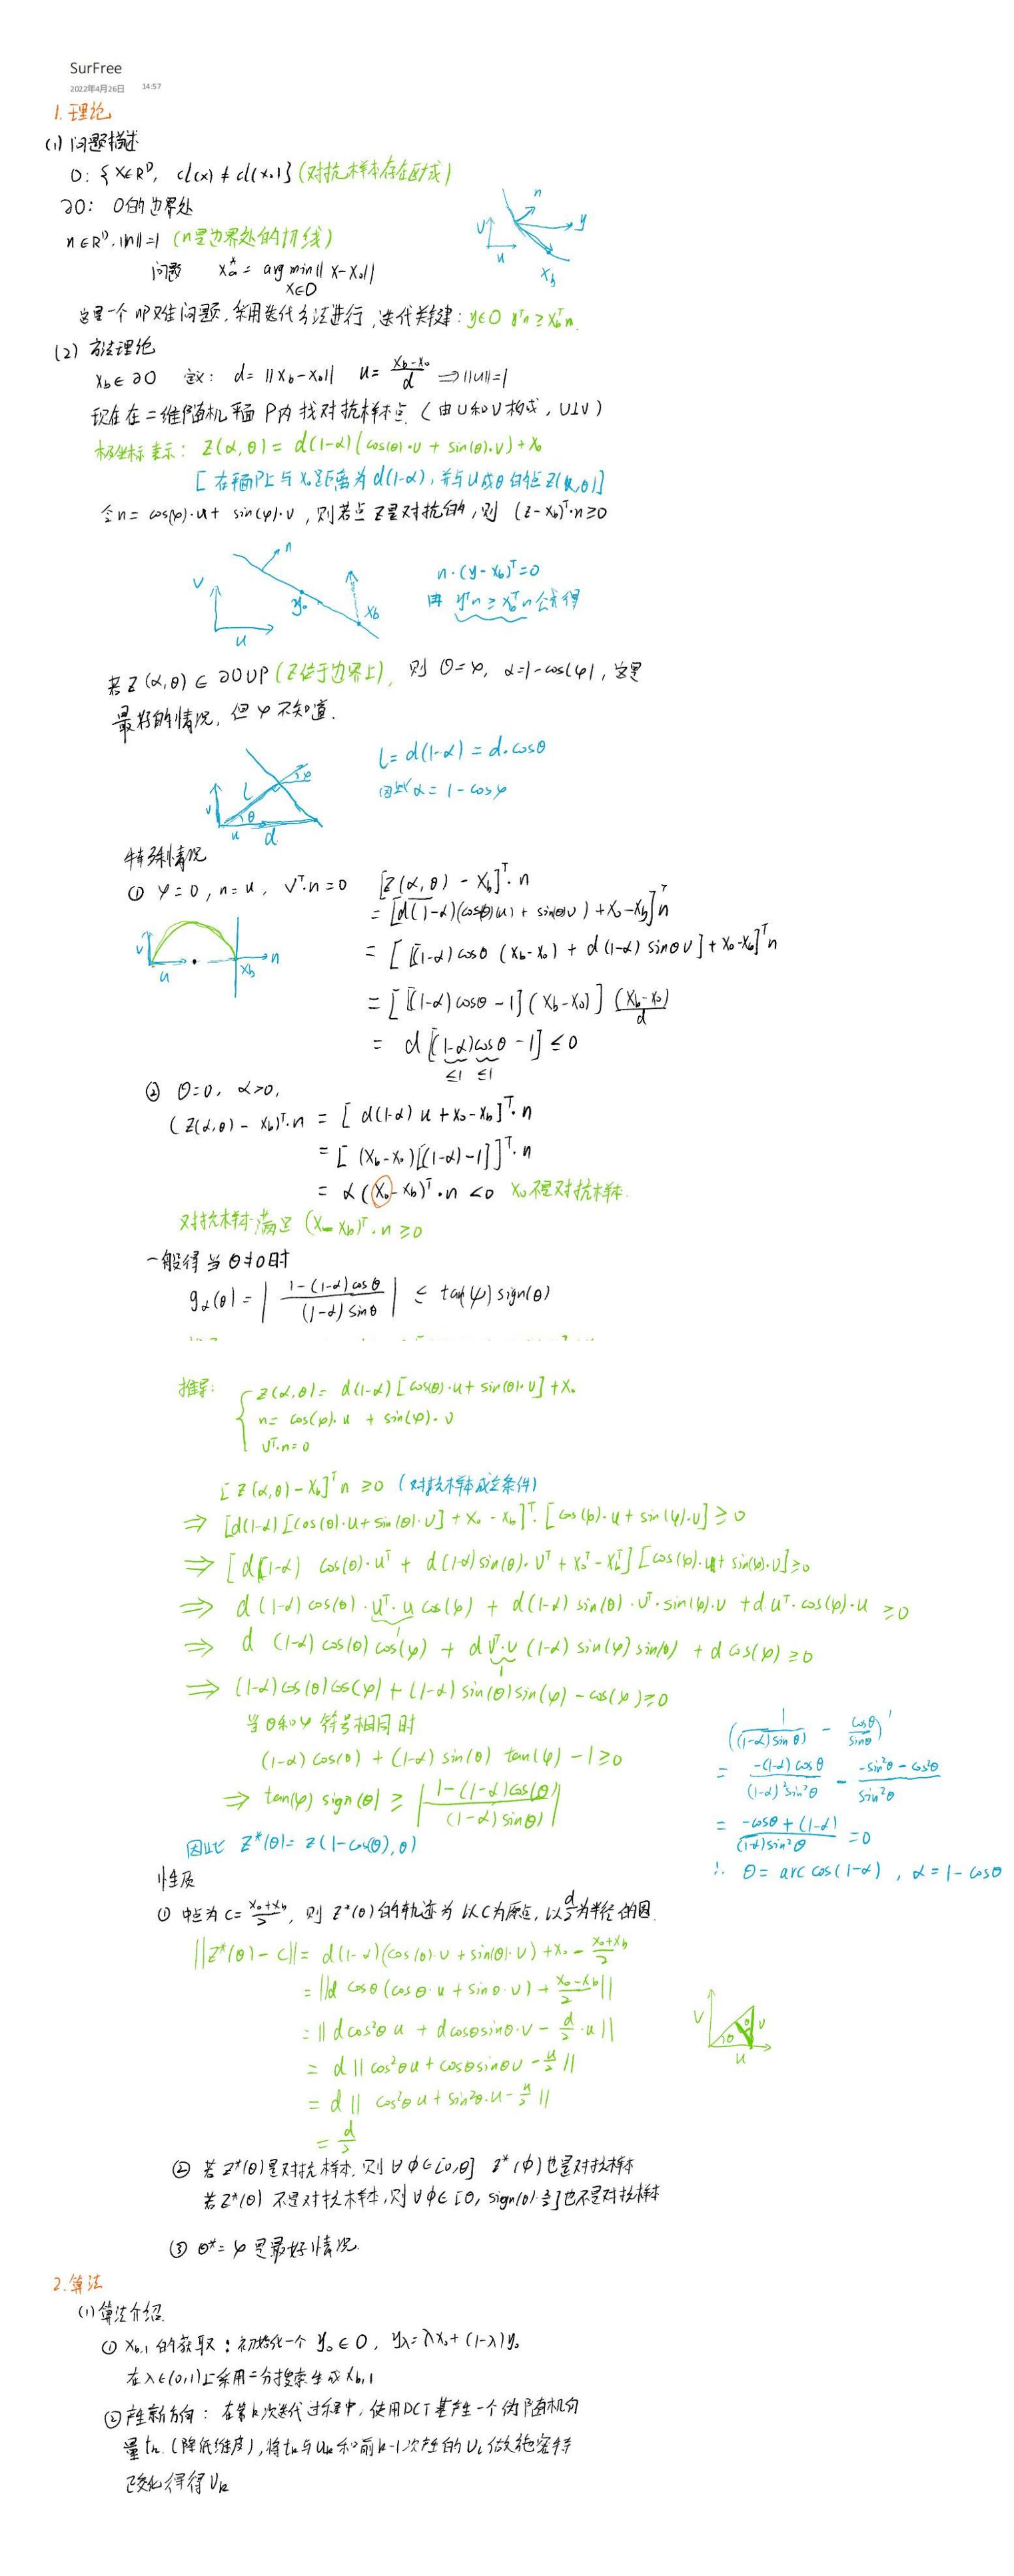 SurFree
2022年4月26日 14:57
1. 理论
(1) 问题描述
O: {x∈R^D, cl(x) ≠ cl(x₀)} (对抗样本存在区域)
∂O: O的边界处
n∈R^D, ||n||=1 (n是边界处的切线)
n
y
v
u
x_b
问题 x_a^* = arg min || x-x₀||
x∈O
这是一个NP难问题, 采用迭代方法进行, 迭代关键: y∈O y^T n ≥ x_b^T n
(2) 方法理论
x_b ∈ ∂O 定义: d = ||x_b - x₀|| u = (x_b-x₀)/d ⇒ ||u||=1
现在在二维随机平面 P内找对抗样本点 (由u和v构成, u⊥v)
极坐标表示: z(α,θ) = d(1-α)(cos(θ)·u + sin(θ)·v) + x₀
[在平面P上与x₀距离为d(1-α), 并与u成θ的点z(α,θ)]
令n = cos(φ)·u + sin(φ)·v, 则若点z是对抗的, 则 (z-x_b)^T·n≥0
n
v
y₀
x_b
u
n·(y-x_b)^T=0
由 y^T n ≥ x_b^T n 公式得
若z(α,θ) ∈ ∂O∪P (z位于边界上), 则 θ=φ, α=1-cos(φ), 这是
最好的情况, 但φ不知道.
L
φ
θ
v
u
d
l = d(1-α) = d·cosθ
因此 α = 1-cosφ
特殊情况
① φ=0, n=u, v^T·n=0 [z(α,θ) - x_b]^T·n
= [d(1-α)(cos(θ)u + sinθv) + x₀-x_b]^T n
v
u
x_b
n
= [[(1-α)cosθ (x_b-x₀) + d(1-α) sinθ v] + x₀-x_b]^T n
= [[(1-α)cosθ - 1](x_b-x₀)] (x_b-x₀)/d
= d[(1-α)cosθ - 1] ≤ 0
≤1 ≤1
② θ=0, α>0,
(z(α,θ) - x_b)^T·n = [d(1-α)u + x₀-x_b]^T·n
= [(x_b-x₀)[(1-α)-1]]^T·n
= α(x₀-x_b)^T·n <0 x₀不是对抗样本.
对抗样本满足 (x-x_b)^T·n ≥0
一般得当θ≠0时
g_α(θ) = | (1-(1-α)cosθ)/((1-α)sinθ) | ≤ tan(ψ)sign(θ)
推导: z(α,θ) = d(1-α)[cos(θ)·u + sin(θ)·v] + x₀
n = cos(φ)·u + sin(φ)·v
v^T·n=0
[z(α,θ) - x_b]^T n ≥0 (对抗样本成立条件)
⇒ [d(1-α)[cos(θ)·u + sin(θ)·v] + x₀ - x_b]^T·[cos(φ)·u + sin(φ)·v] ≥ 0
⇒ [d(1-α) cos(θ)·u^T + d(1-α)sin(θ)·v^T + x₀^T - x_b^T][cos(φ)·u + sin(φ)·v] ≥0
⇒ d(1-α)cos(θ)·u^T·u cos(φ) + d(1-α) sin(θ)·v^T·sin(φ)·v + d·u^T·cos(φ)·u ≥0
⇒ d (1-α) cos(θ) cos(φ) + d v^T·v (1-α) sin(φ) sin(θ) + d cos(φ) ≥0
1
⇒ (1-α)cos(θ)cos(φ) + (1-α)sin(θ)sin(φ) - cos(φ) ≥0
当θ和φ符号相同时
(1-α) cos(θ) + (1-α) sin(θ) tan(φ) - 1 ≥0
⇒ tan(φ) sign(θ) ≥ | (1-(1-α)cos(θ))/((1-α)sinθ) |
(1/((1-α)sinθ) - cosθ/sinθ)'
= -(1-α)cosθ/((1-α)²sin²θ) - (-sin²θ-cos²θ)/sin²θ
= (-cosθ+(1-α))/((1-α)sin²θ) = 0
∴ θ = arc cos(1-α), α = 1-cosθ
因此 z*(θ) = z(1-cos(θ), θ)
性质
① 中点为 c = (x₀+x_b)/2, 则 z*(θ)的轨迹为以C为原点, 以d/2为半径的圆.
||z*(θ) - c|| = d(1-α)(cos(θ)·u + sin(θ)·v) + x₀ - (x₀+x_b)/2
= ||d cosθ(cosθ·u + sinθ·v) + (x₀-x_b)/2||
= || dcos²θ u + dcosθsinθ·v - d/2·u||
= d || cos²θu + cosθsinθv - u/2 ||
= d || cos²θu + sin²θ·u - u/2 ||
= d/2
v
θ
θ
v
u
② 若z*(θ)是对抗样本, 则∀ϕ∈[0,θ] z*(ϕ)也是对抗样本
若z*(θ) 不是对抗样本, 则∀ϕ∈[θ, sign(θ)·π/2]也不是对抗样本
③ θ*=φ是最好情况.
2. 算法
(1) 算法介绍
① x_{b,1}的获取: 初始化一个 y₀∈O, y_λ=λx₀+(1-λ)y₀
在λ∈(0,1)上采用二分搜索生成x_{b,1}
② 产生新方向: 在第k次迭代过程中, 使用DCT基产生一个伪随机向
量t_k. (降低维度), 将t_k与u_k和前k-1次产生的v_i做施密特
正交化得得v_k